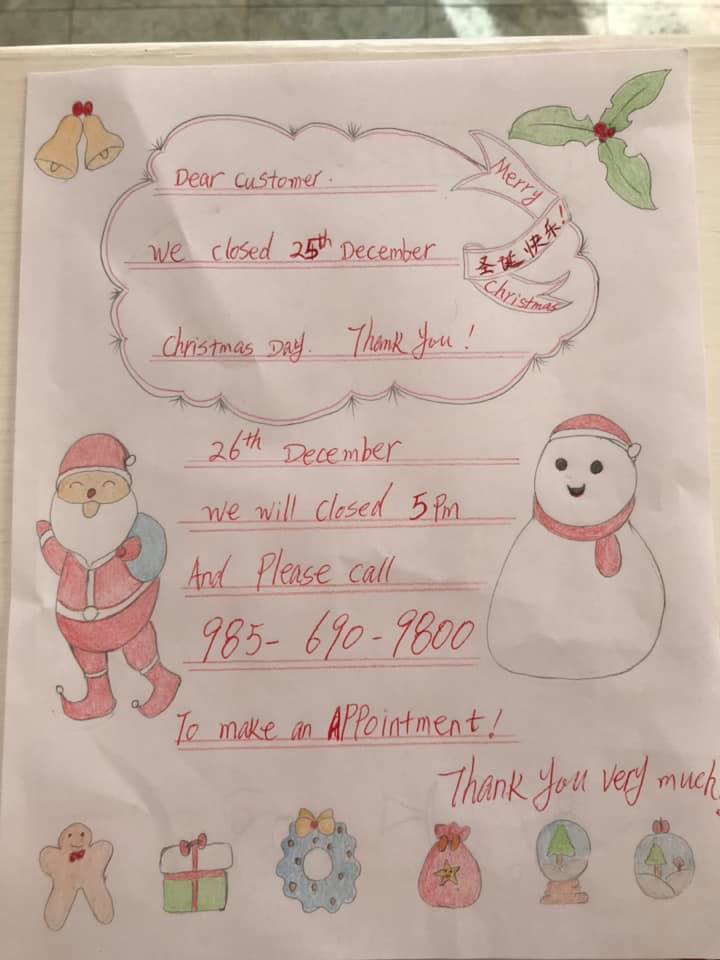 Dear customer.
Merry
we closed 25th December
圣诞快乐!
Christmas
Christmas Day. Thank You!
26th December
we will closed 5 Pm
And Please call
985-690-9800
To make an APPointment!
Thank you very much